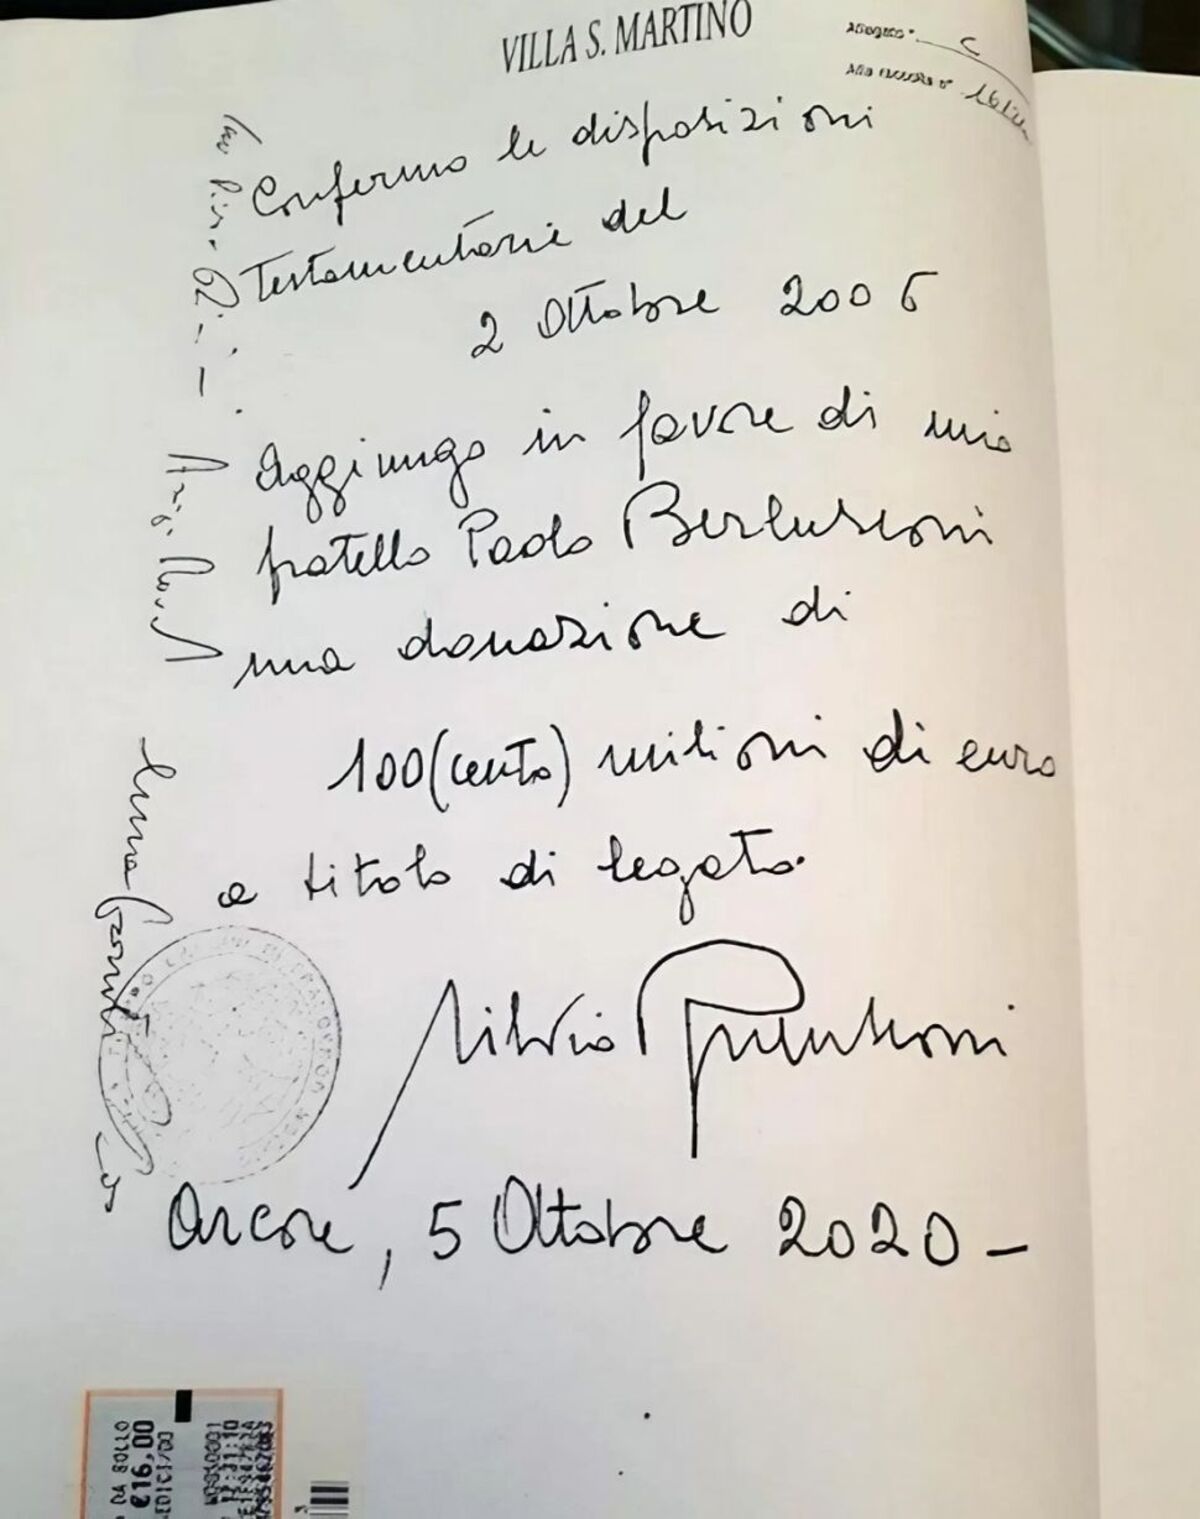 VILLA S. MARTINO
Allegato " C
Alla raccolta n°
Confermo le disposizioni
Testamentarie del
2 Ottobre 2006
Aggiungo in favore di mio
fratello Paolo Berlusconi
una donazione di
100 (cento) milioni di euro
a titolo di legato.
Silvio Berlusconi
Arcore, 5 Ottobre 2020 -
DA BOLLO
€16,00
EDICI/00